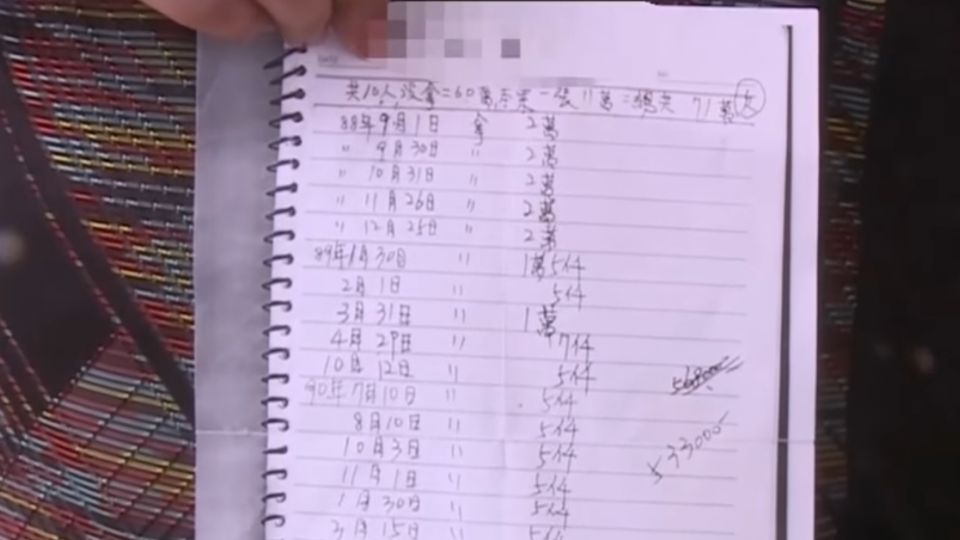 共10人沒拿=60萬,本票一張11萬=總共 71萬欠
88年9月1日 拿 2萬
〃 9月30日 〃 2萬
〃 10月31日 〃 2萬
〃 11月26日 〃 2萬
〃 12月25日 〃 2萬
89年1月30日 〃 1萬5仟
2月1日 〃 5仟
3月31日 〃 1萬
4月29日 〃 7仟
10月12日 〃 5仟
90年7月10日 〃 5仟
8月10日 〃 5仟
10月3日 〃 5仟
33000
11月1日 〃 5仟
1月30日 〃 5仟
3月15日 〃 5仟